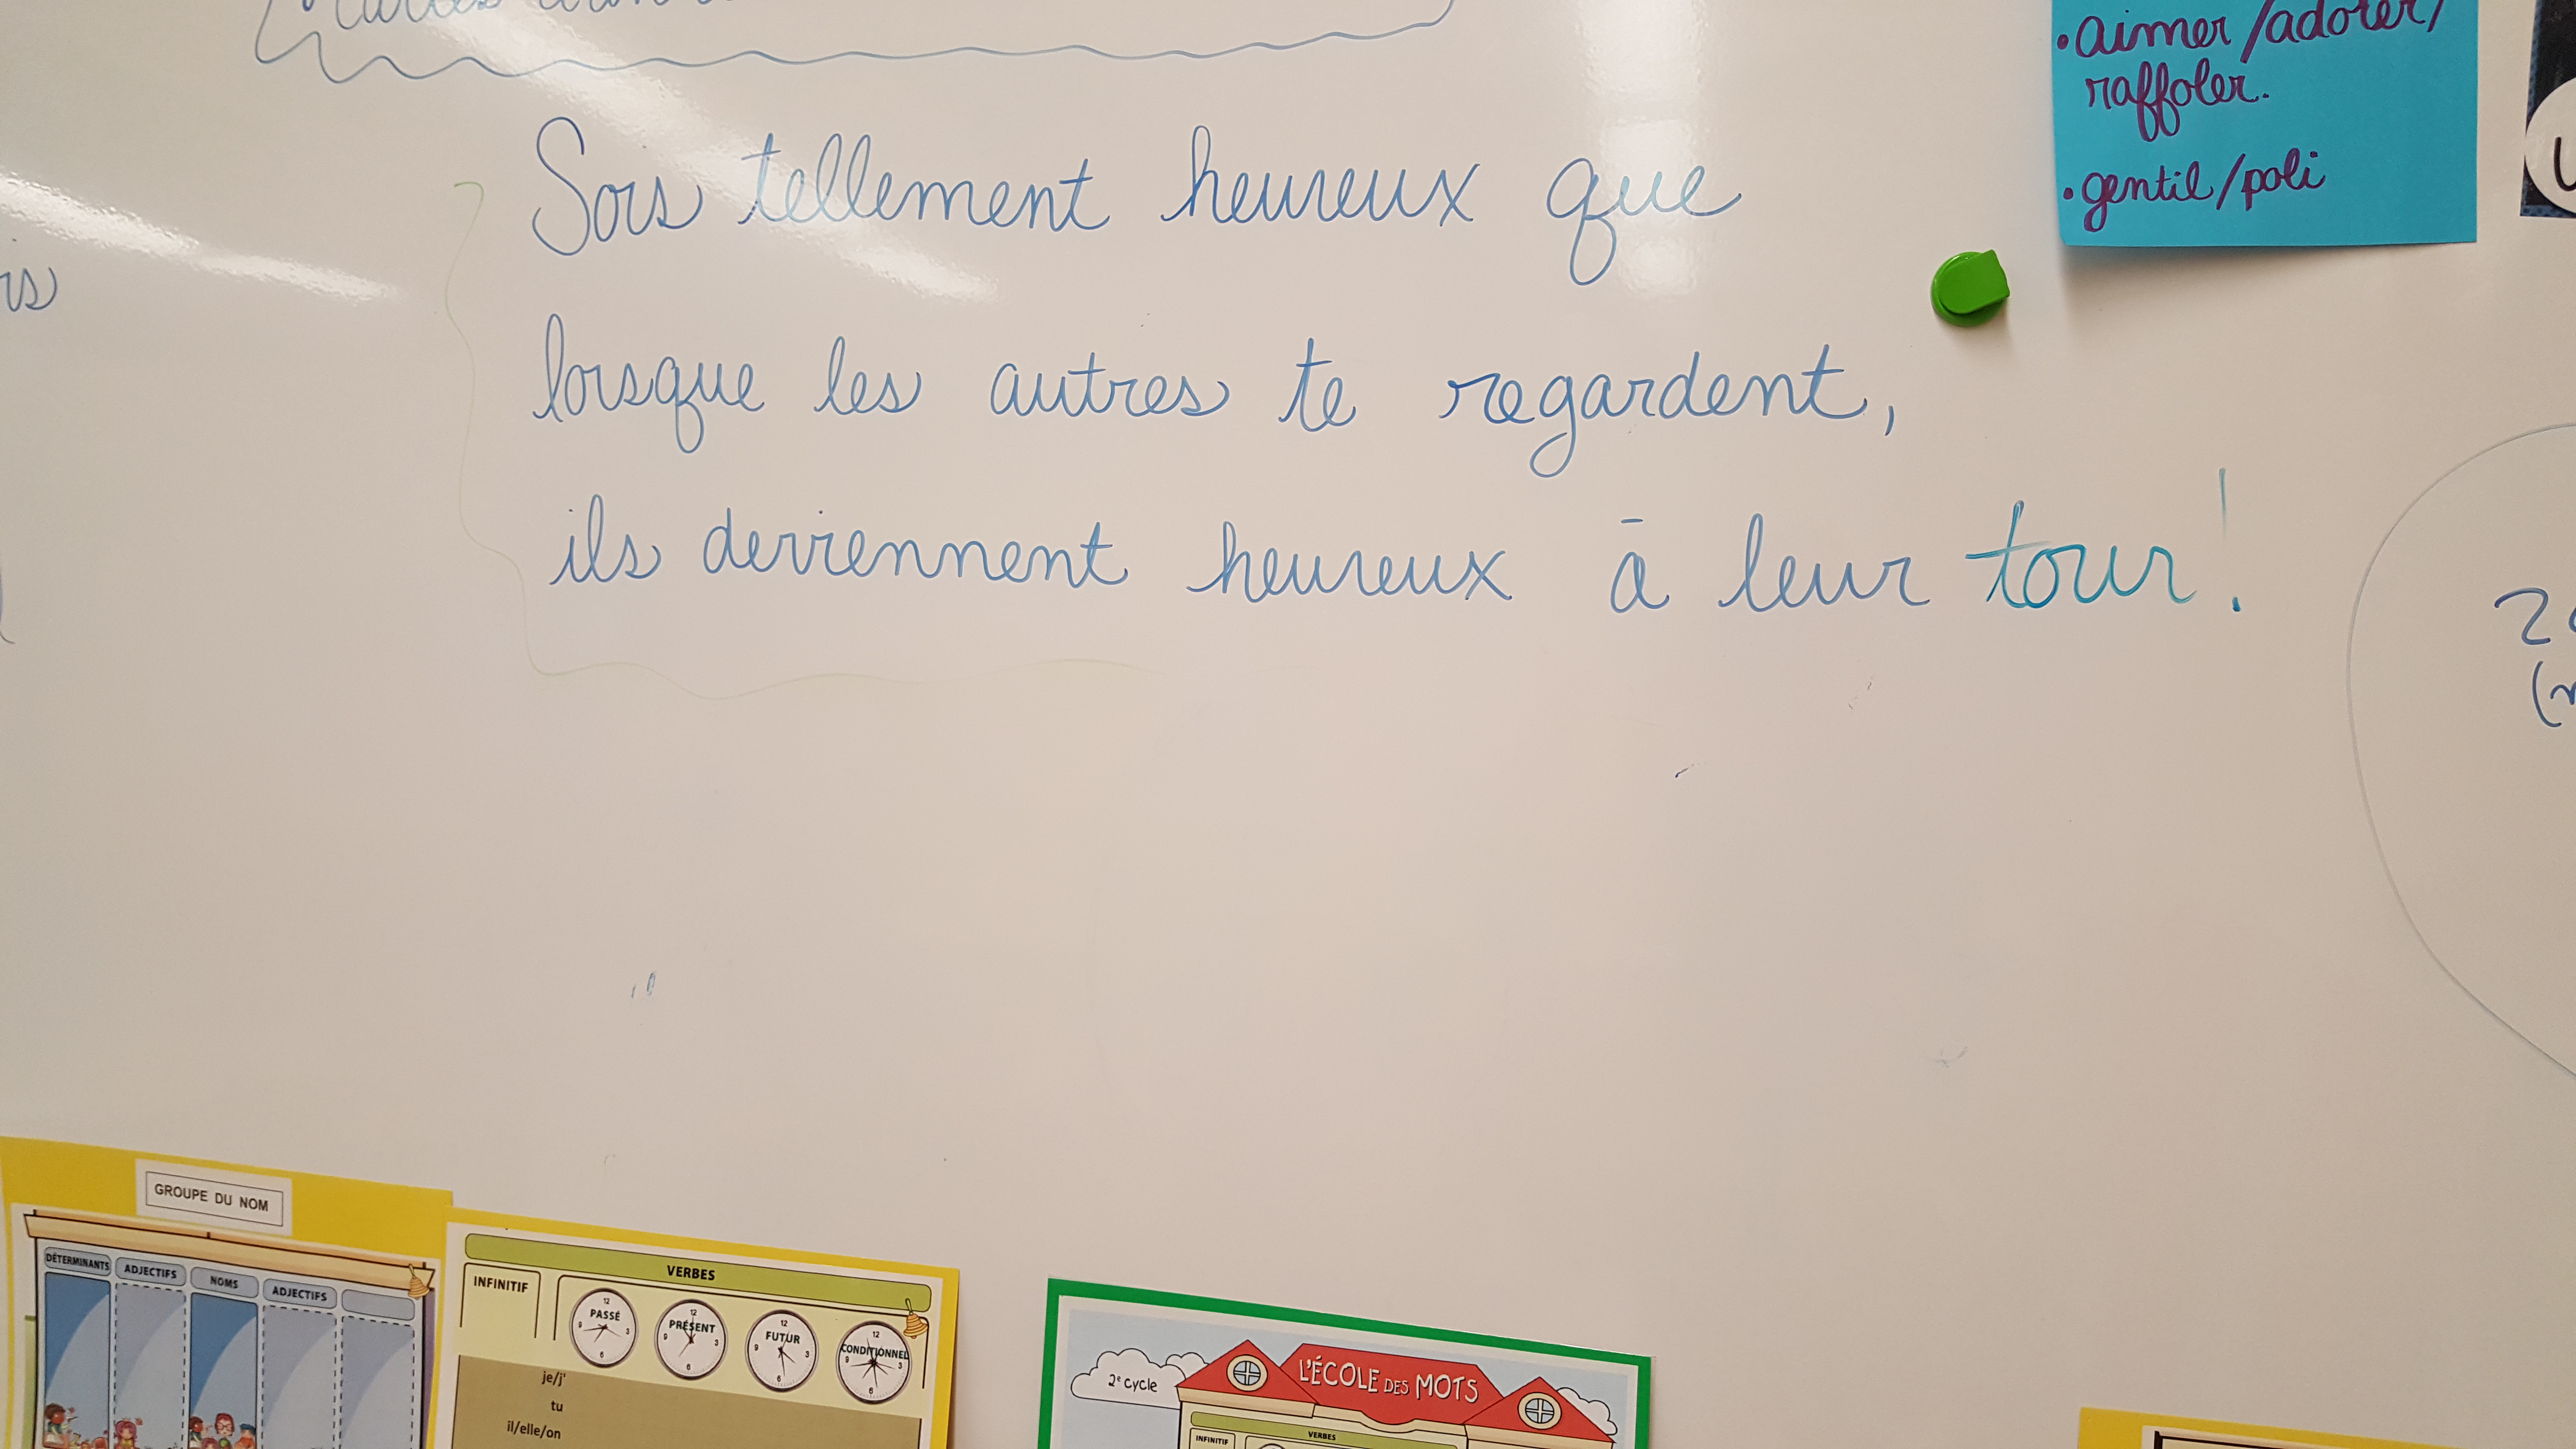 aimer / adorer /
raffoler.
gentil / poli
Sois tellement heureux que
lorsque les autres te regardent,
ils deviennent heureux à leur tour !
GROUPE DU NOM
DÉTERMINANTS ADJECTIFS NOMS ADJECTIFS
VERBES
INFINITIF
12 PASSÉ 9 3 6
12 PRÉSENT 9 3 6
12 FUTUR 9 3 6
12 CONDITIONNEL 9 3 6
je/j'
tu
il/elle/on
2e cycle
L'ÉCOLE DES MOTS
VERBES
INFINITIF